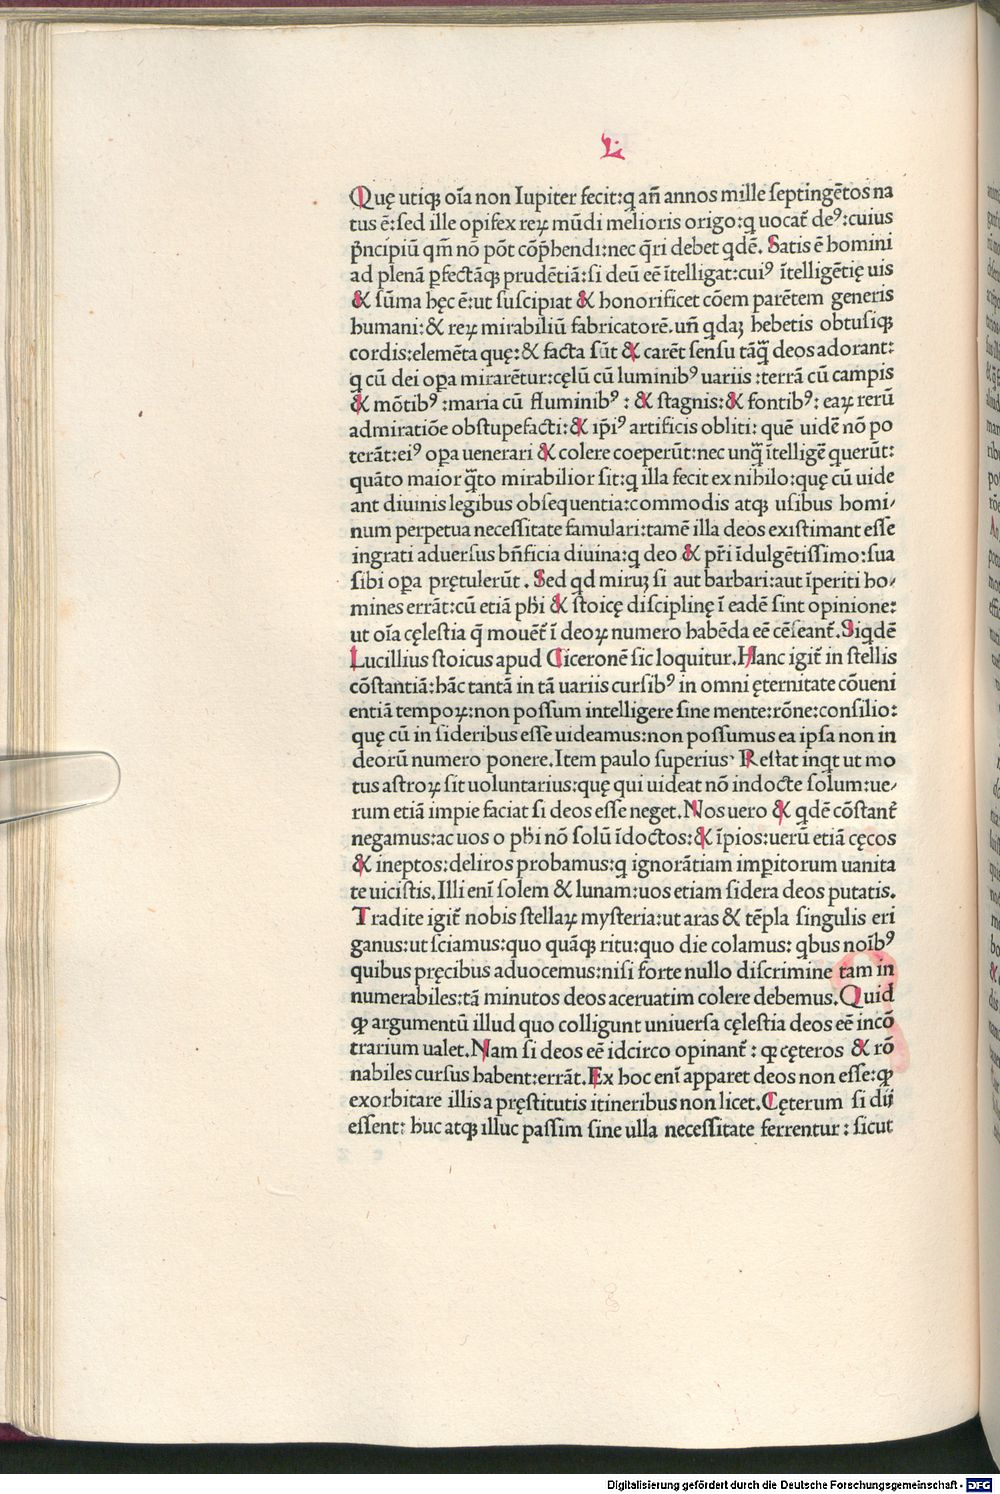 L.
Quę utiqꝫ oīa non Iupiter fecit:q añ annos mille septingētos na
tus ē:sed ille opifex reꝝ mūdi melioris origo:q uocat̄ deꝰ:cuius
p̄ncipiū qm̄ nō pōt cōp̄hendi:nec q̄ri debet qdē. Satis ē homini
ad plenā ꝑfectāqꝫ prudētiā:si deū eē ītelligat:cuiꝰ ītelligētię uis
& sūma hęc ē:ut suscipiat & honorificet cōem parētem generis
humani:& reꝝ mirabiliū fabricatorē.uñ qdaꝫ hebetis obtusiqꝫ
cordis:elemēta quę:& facta sūt & carēt sensu tāq̄ deos adorant:
q cū dei oꝑa mirarētur:cęlū cū luminibꝰ uariis :terrā cū campis
& mōtibꝰ :maria cū fluminibꝰ : & stagnis:& fontibꝰ: eaꝝ rerū
admiratiōe obstupefacti:& ip̄iꝰ artificis obliti: quē uidē nō po
terāt:eiꝰ oꝑa uenerari & colere coeperūt:nec unq̄ ītelligē querūt:
quāto maior q̄to mirabilior sit:q illa fecit ex nihilo:quę cū uide
ant diuinis legibus obsequentia:commodis atqꝫ usibus homi/
num perpetua necessitate famulari:tamē illa deos existimant esse
ingrati aduersus bn̄ficia diuina:q deo & pr̄i īdulgētissimo:sua
sibi oꝑa pręetulerūt . Sed qd miruꝫ si aut barbari:aut īperiti ho/
mines errāt:cū etiā ph̄i & stoicę disciplinę ī eadē sint opinione:
ut oīa cęlestia q̄ mouēt̄ ī deoꝝ numero habēda eē cēseant̄.Siqdē
Lucillius stoicus apud Ciceronē sic loquitur.Hanc igit̄ in stellis
cōstantiā:hāc tantā in tā uariis cursibꝰ in omni ęternitate cōueni
entiā tempoꝝ:non possum intelligere sine mente:rōne:consilio:
quę cū in sideribus esse uideamus:non possumus ea ipsa non in
deorū numero ponere.Item paulo superius: Restat inqt ut mo
tus astroꝝ sit uoluntarius:quę qui uideat nō indocte solum:ue/
rum etiā impie faciat si deos esse neget.Nos uero & qdē cōstant̄
negamus:ac uos o ph̄i nō solū īdoctos:& īpios:uerū etiā cęcos
& ineptos:deliros probamus:q ignorātiam imꝑitorum uanita
te uicistis.Illi enī solem & lunam:uos etiam sidera deos putatis.
Tradite igit̄ nobis stellaꝝ mysteria:ut aras & tēpla singulis eri
ganus:ut sciamus:quo quāqꝫ ritu:quo die colamus: qbus noībꝰ
quibus pręcibus aduocemus:nisi forte nullo discrimine tam in
numerabiles:tā minutos deos aceruatim colere debemus.Quid
ꝙ argumentū illud quo colligunt uniuersa cęlestia deos eē incō
trarium ualet.Nam si deos eē idcirco opinant̄ : ꝙ cęteros & rō
nabiles cursus habent:errāt.Ex hoc enī apparet deos non esse:ꝙ
exorbitare illis a pręstitutis itineribus non licet.Cęterum si dij
essent: huc atqꝫ illuc passim sine ulla necessitate ferrentur : sicut
Digitalisierung gefördert durch die Deutsche Forschungsgemeinschaft - DFG